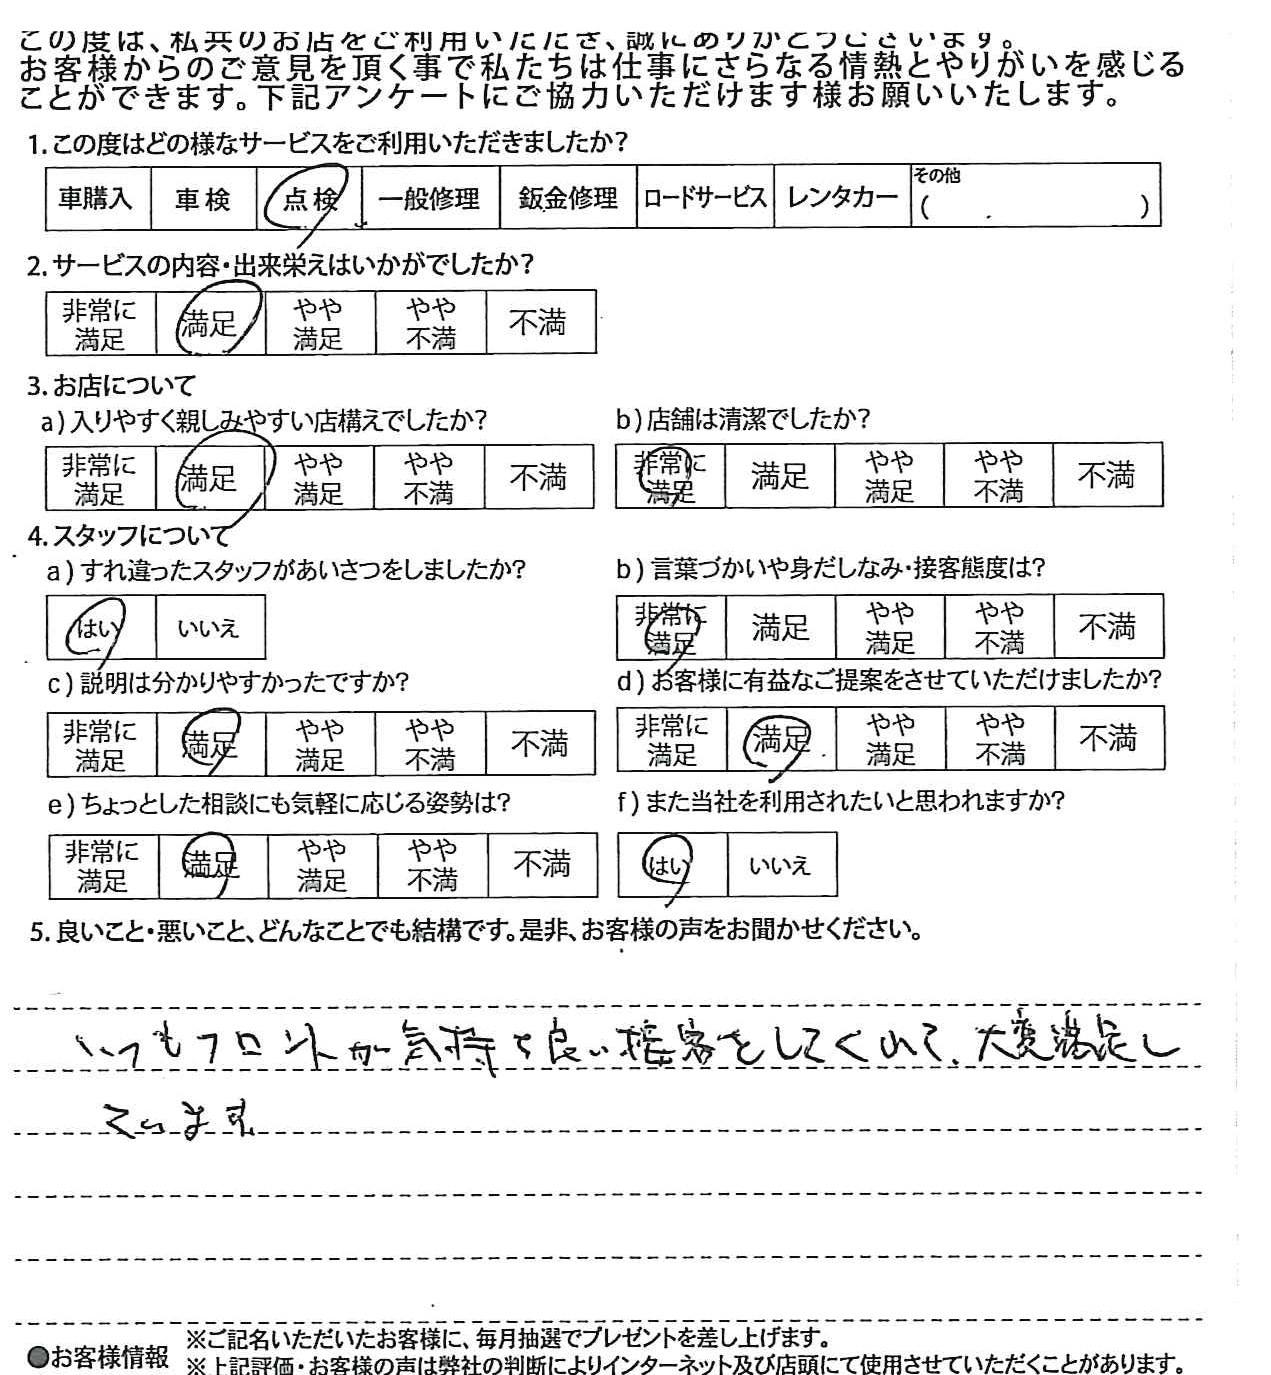 この度は、私共のお店をご利用いただき、誠にありがとうございます。
お客様からのご意見を頂く事で私たちは仕事にさらなる情熱とやりがいを感じる
ことができます。下記アンケートにご協力いただけます様お願いいたします。
1.この度はどの様なサービスをご利用いただきましたか?
車購入 車検 点検 一般修理 鈑金修理 ロードサービス レンタカー その他
( )
2.サービスの内容・出来栄えはいかがでしたか?
非常に満足 満足 やや満足 やや不満 不満
3.お店について
a)入りやすく親しみやすい店構えでしたか? b)店舗は清潔でしたか?
非常に満足 満足 やや満足 やや不満 不満 非常に満足 満足 やや満足 やや不満 不満
4.スタッフについて
a)すれ違ったスタッフがあいさつをしましたか? b)言葉づかいや身だしなみ・接客態度は?
はい いいえ 非常に満足 満足 やや満足 やや不満 不満
c)説明は分かりやすかったですか? d)お客様に有益なご提案をさせていただけましたか?
非常に満足 満足 やや満足 やや不満 不満 非常に満足 満足 やや満足 やや不満 不満
e)ちょっとした相談にも気軽に応じる姿勢は? f)また当社を利用されたいと思われますか?
非常に満足 満足 やや満足 やや不満 不満 はい いいえ
5.良いこと・悪いこと、どんなことでも結構です。是非、お客様の声をお聞かせください。
いつもフロントが気持ち良い接客をしてくれて、大変満足し
ています
●お客様情報 ※ご記名いただいたお客様に、毎月抽選でプレゼントを差し上げます。
※上記評価・お客様の声は弊社の判断によりインターネット及び店頭にて使用させていただくことがあります。